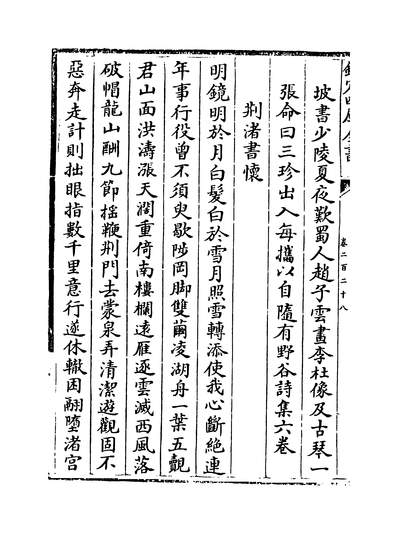 欽定四庫全書
卷二百二十八
坡書少陵夏夜歎蜀人趙子雲畫李杜像及古琴一
張命曰三珍出入每攜以自隨有野谷詩集六卷
荆渚書懷
明鏡明於月白髮白於雪月照雪轉添使我心斷絶連
年事行役曾不須臾歇陟岡脚雙繭凌湖舟一葉五覿
君山面洪濤漲天濶重倚南樓欄遠雁逐雲滅西風落
破帽龍山酬九節揺鞭荆門去蒙泉弄清潔遊觀固不
惡奔走計則拙眼指數千里意行遂休轍困翮墮渚宫